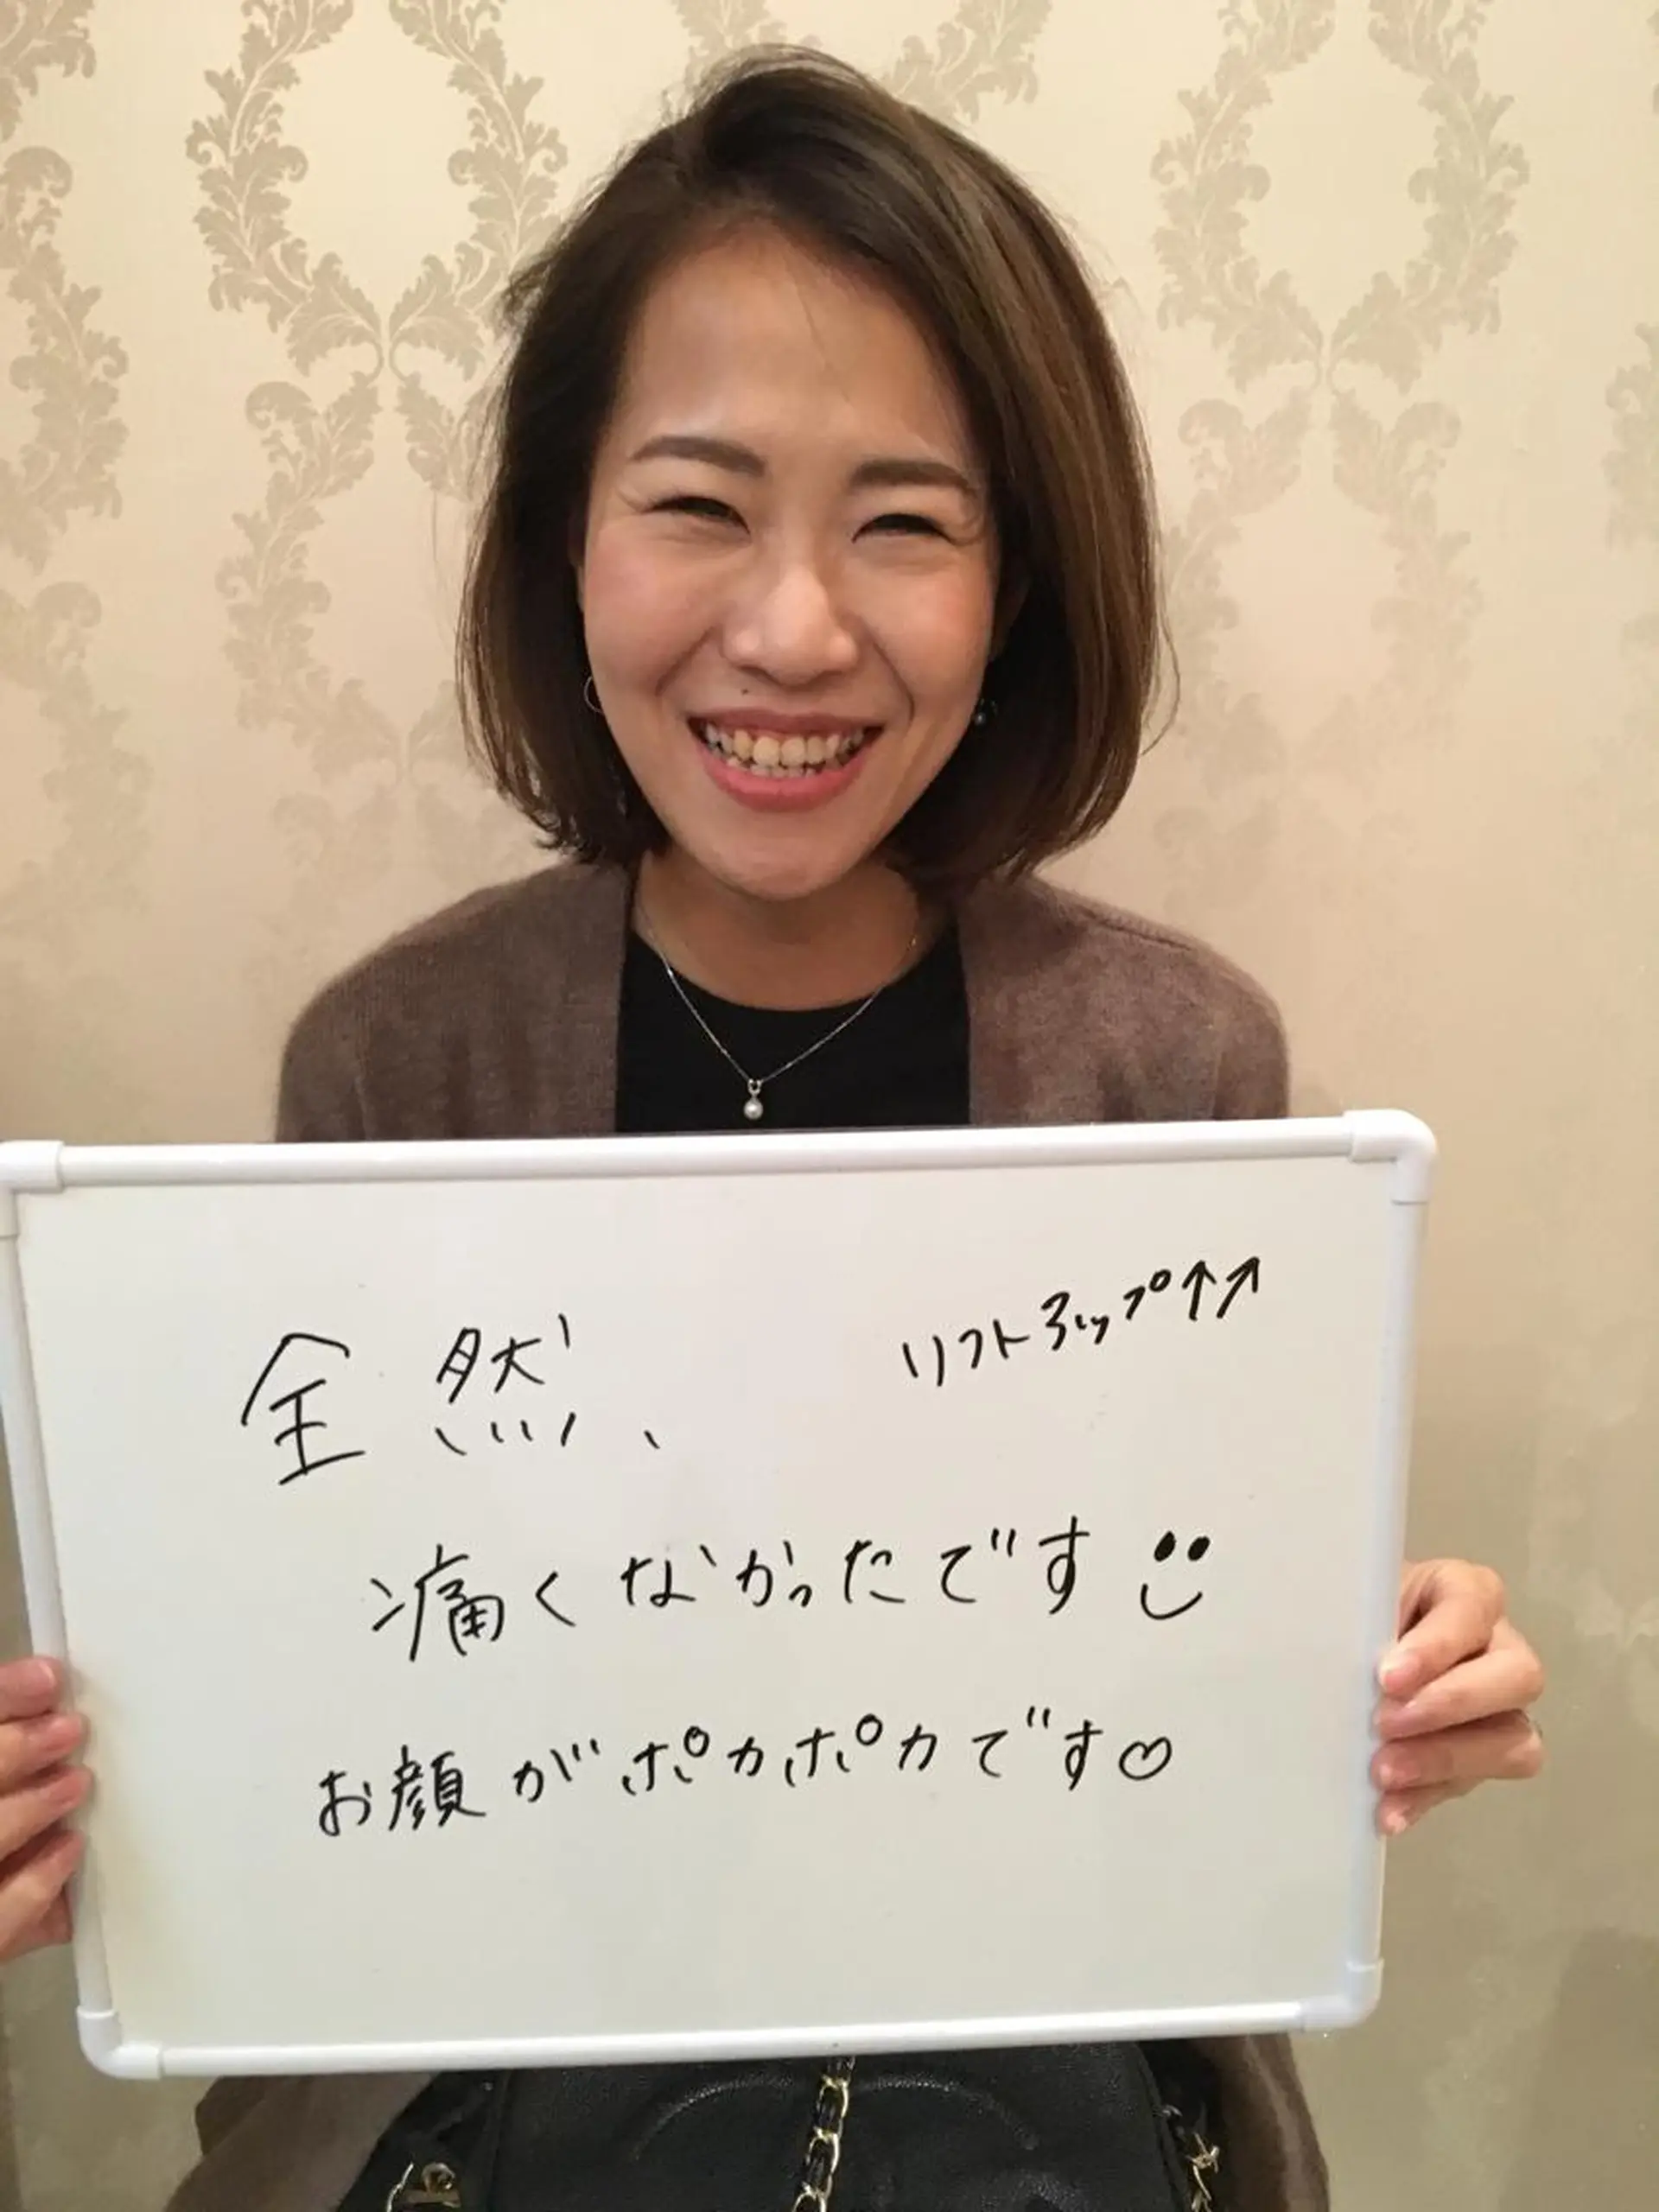 リフトアップ↑↗
全然、
痛くなかったです
お顔がポカポカです♡